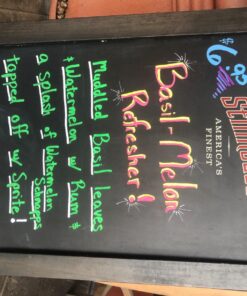 $6.00
AMERICA'S
FINEST
Basil-Melon
Refresher!
Muddled Basil leaves
& Watermelon w/ Rum &
a splash of Watermelon
Schnapps
topped off w/ Sprite!